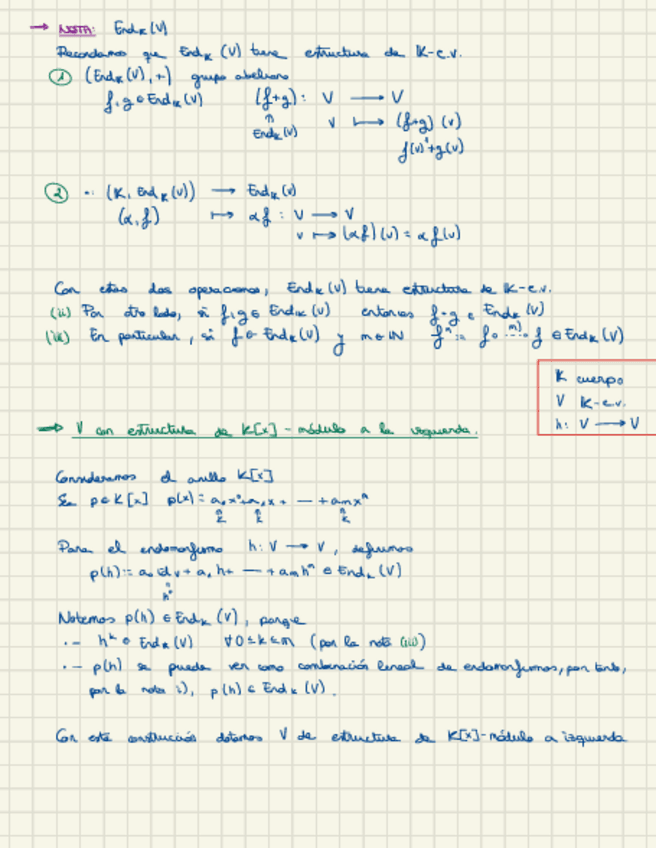 → NOTA: End_K(V)
Recordamos que End_K (V) tiene estructura de K-e.v.
① (End_K(V), +) grupo abeliano
f, g ∈ End_K(V) (f+g) : V → V
∩ End_K(V) v ↦ (f+g) (v)
f(v) + g(v)
② ·: (K, End_K(V)) → End_K(V)
(α, f) ↦ αf : V → V
v ↦ (αf)(v) = α f(v)
Con estas dos operaciones, End_K(V) tiene estructura de K-e.v.
(ii) Por otro lado, si f, g ∈ End_K(V) entonces f∘g ∈ End_K(V)
(iii) En particular, si f ∈ End_K(V) y m ∈ ℕ fⁿ := f∘ .m). f ∈ End_K(V)
K cuerpo
V K-e.v.
h: V → V
→ V con estructura de K[x] - módulo a la izquierda.
Consideramos el anillo K[x]
Sea p ∈ K[x] p(x) = a₀x⁰ + a₁x + — + aₘxⁿ
K K K
Para el endomorfismo h: V → V, definimos
p(h) := a₀ id_V + a₁ h + — + aₘ hⁿ ∈ End_K (V)
h⁰
Notemos p(h) ∈ End_K (V), porque
·- hᵏ ∈ End_K(V) ∀ 0 ≤ k ≤ m (por la nota (iii))
·- p(h) se puede ver como combinación lineal de endomorfismos, por tanto,
por la nota i), p(h) ∈ End_K (V).
Con esta construcción dotamos V de estructura de K[x]-módulo a izquierda